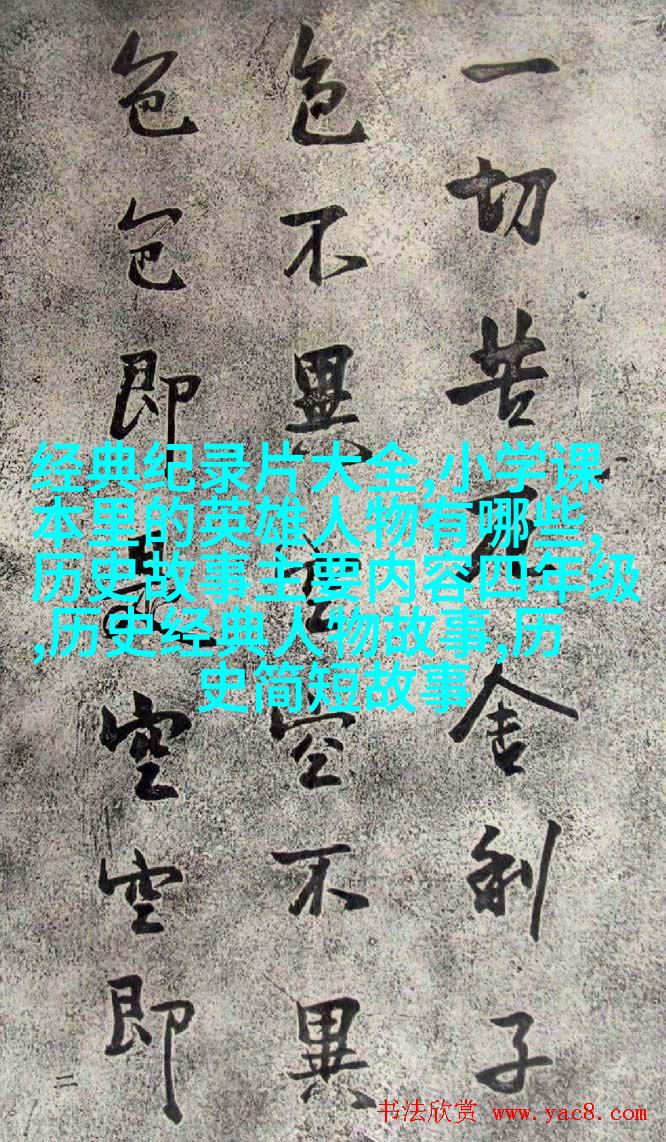 一切苦厄舍利子
色不異空空不異
色色即是空空即
二
经典纪录片大全,小学课
本里的英雄人物有哪些,
历史故事主要内容四年级
,历史经典人物故事,历
史简短故事
书法欣赏 www.yac8.com